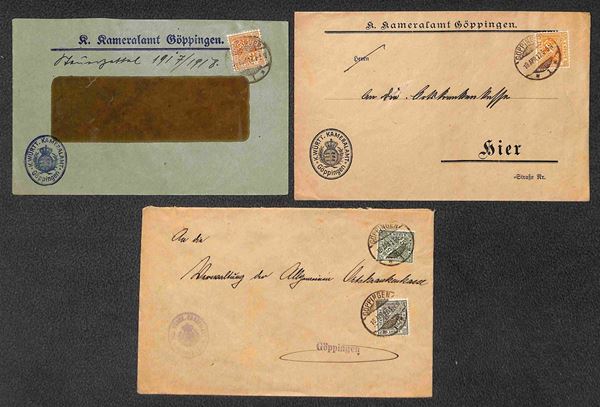 K. Kameralamt Göppingen.
Steuerzettel 1917/1918.
GÖPPINGEN
K. WÜRTT. KAMERALAMT
Göppingen
K. Kameralamt Göppingen.
GÖPPINGEN
Herrn
An die Ortskrankenkasse
Hier
K. WÜRTT. KAMERALAMT
Göppingen
-Straße Nr.
An die
GÖPPINGEN
Verwaltung der Allgemeinen Ortskrankenkasse
GÖPPINGEN
Göppingen